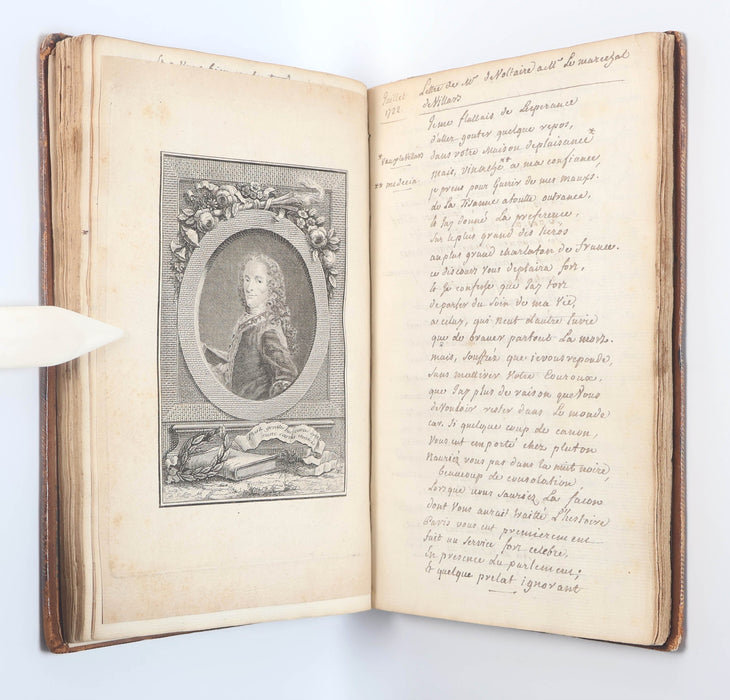 Juillet
1722.
Lettre de Mr. de Voltaire a Mr. Le marechal
de Villars
Je me flattais de L'esperance
d'aller gouter quelque repos,
* Vaux le Villars
dans votre Maison de plaisance*
** medecin
Mais, vinache** a ma confiance,
je prens pour Guerir de mes maux.
de La Tisanne a toutte outrance,
& J'ay donné La preference,
Sur le plus grand des heros
au plus grand charlatan de France.
ce discours Vous deplaira fort,
& Je confesse que J'ay tort
de porter du Soin de ma Vie,
a celuy, qui n'eut d'autre Envie
que de braver partout La mort.
mais, Souffrez que je vous reponde,
Sans m'attirer Votre Couroux,
que J'ay plus de raison que Vous
de Vouloir rester dans Le monde
car, Si quelque coup de canon,
Vous eut emporté chez pluton
N'auriez vous pas dans la nuit noire,
beaucoup de consolation,
Lorsque vous Sauriez La facon
dont Vous auroit traitté L'histoire
Paris vous eut premierement
fait un Service fort celebre
En presence du parlement;
& quelque prelat ignorant